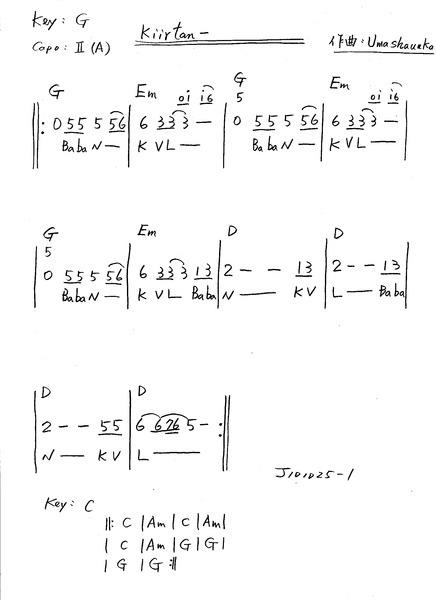 Key: G
Kiirtan-
Capo: II (A)
作曲: Umashaunko
G Em G Em
0i i6 5 0i i6
‖: 0 55 5 56 | 6 33 3 — | 0 55 5 56 | 6 33 3 — |
Baba N — K V L — Baba N — K V L —
G Em D D
5
0 55 5 56 | 6 33 3 13 | 2 - - 13 | 2 - - 13 |
Baba N — K V L Baba N — K V L — Baba
D D
| 2 - - 55 | 6 676 5 - :‖
N — K V L —
J101025-1
Key: C
‖: C | Am | C | Am |
| C | Am | G | G |
| G | G :‖